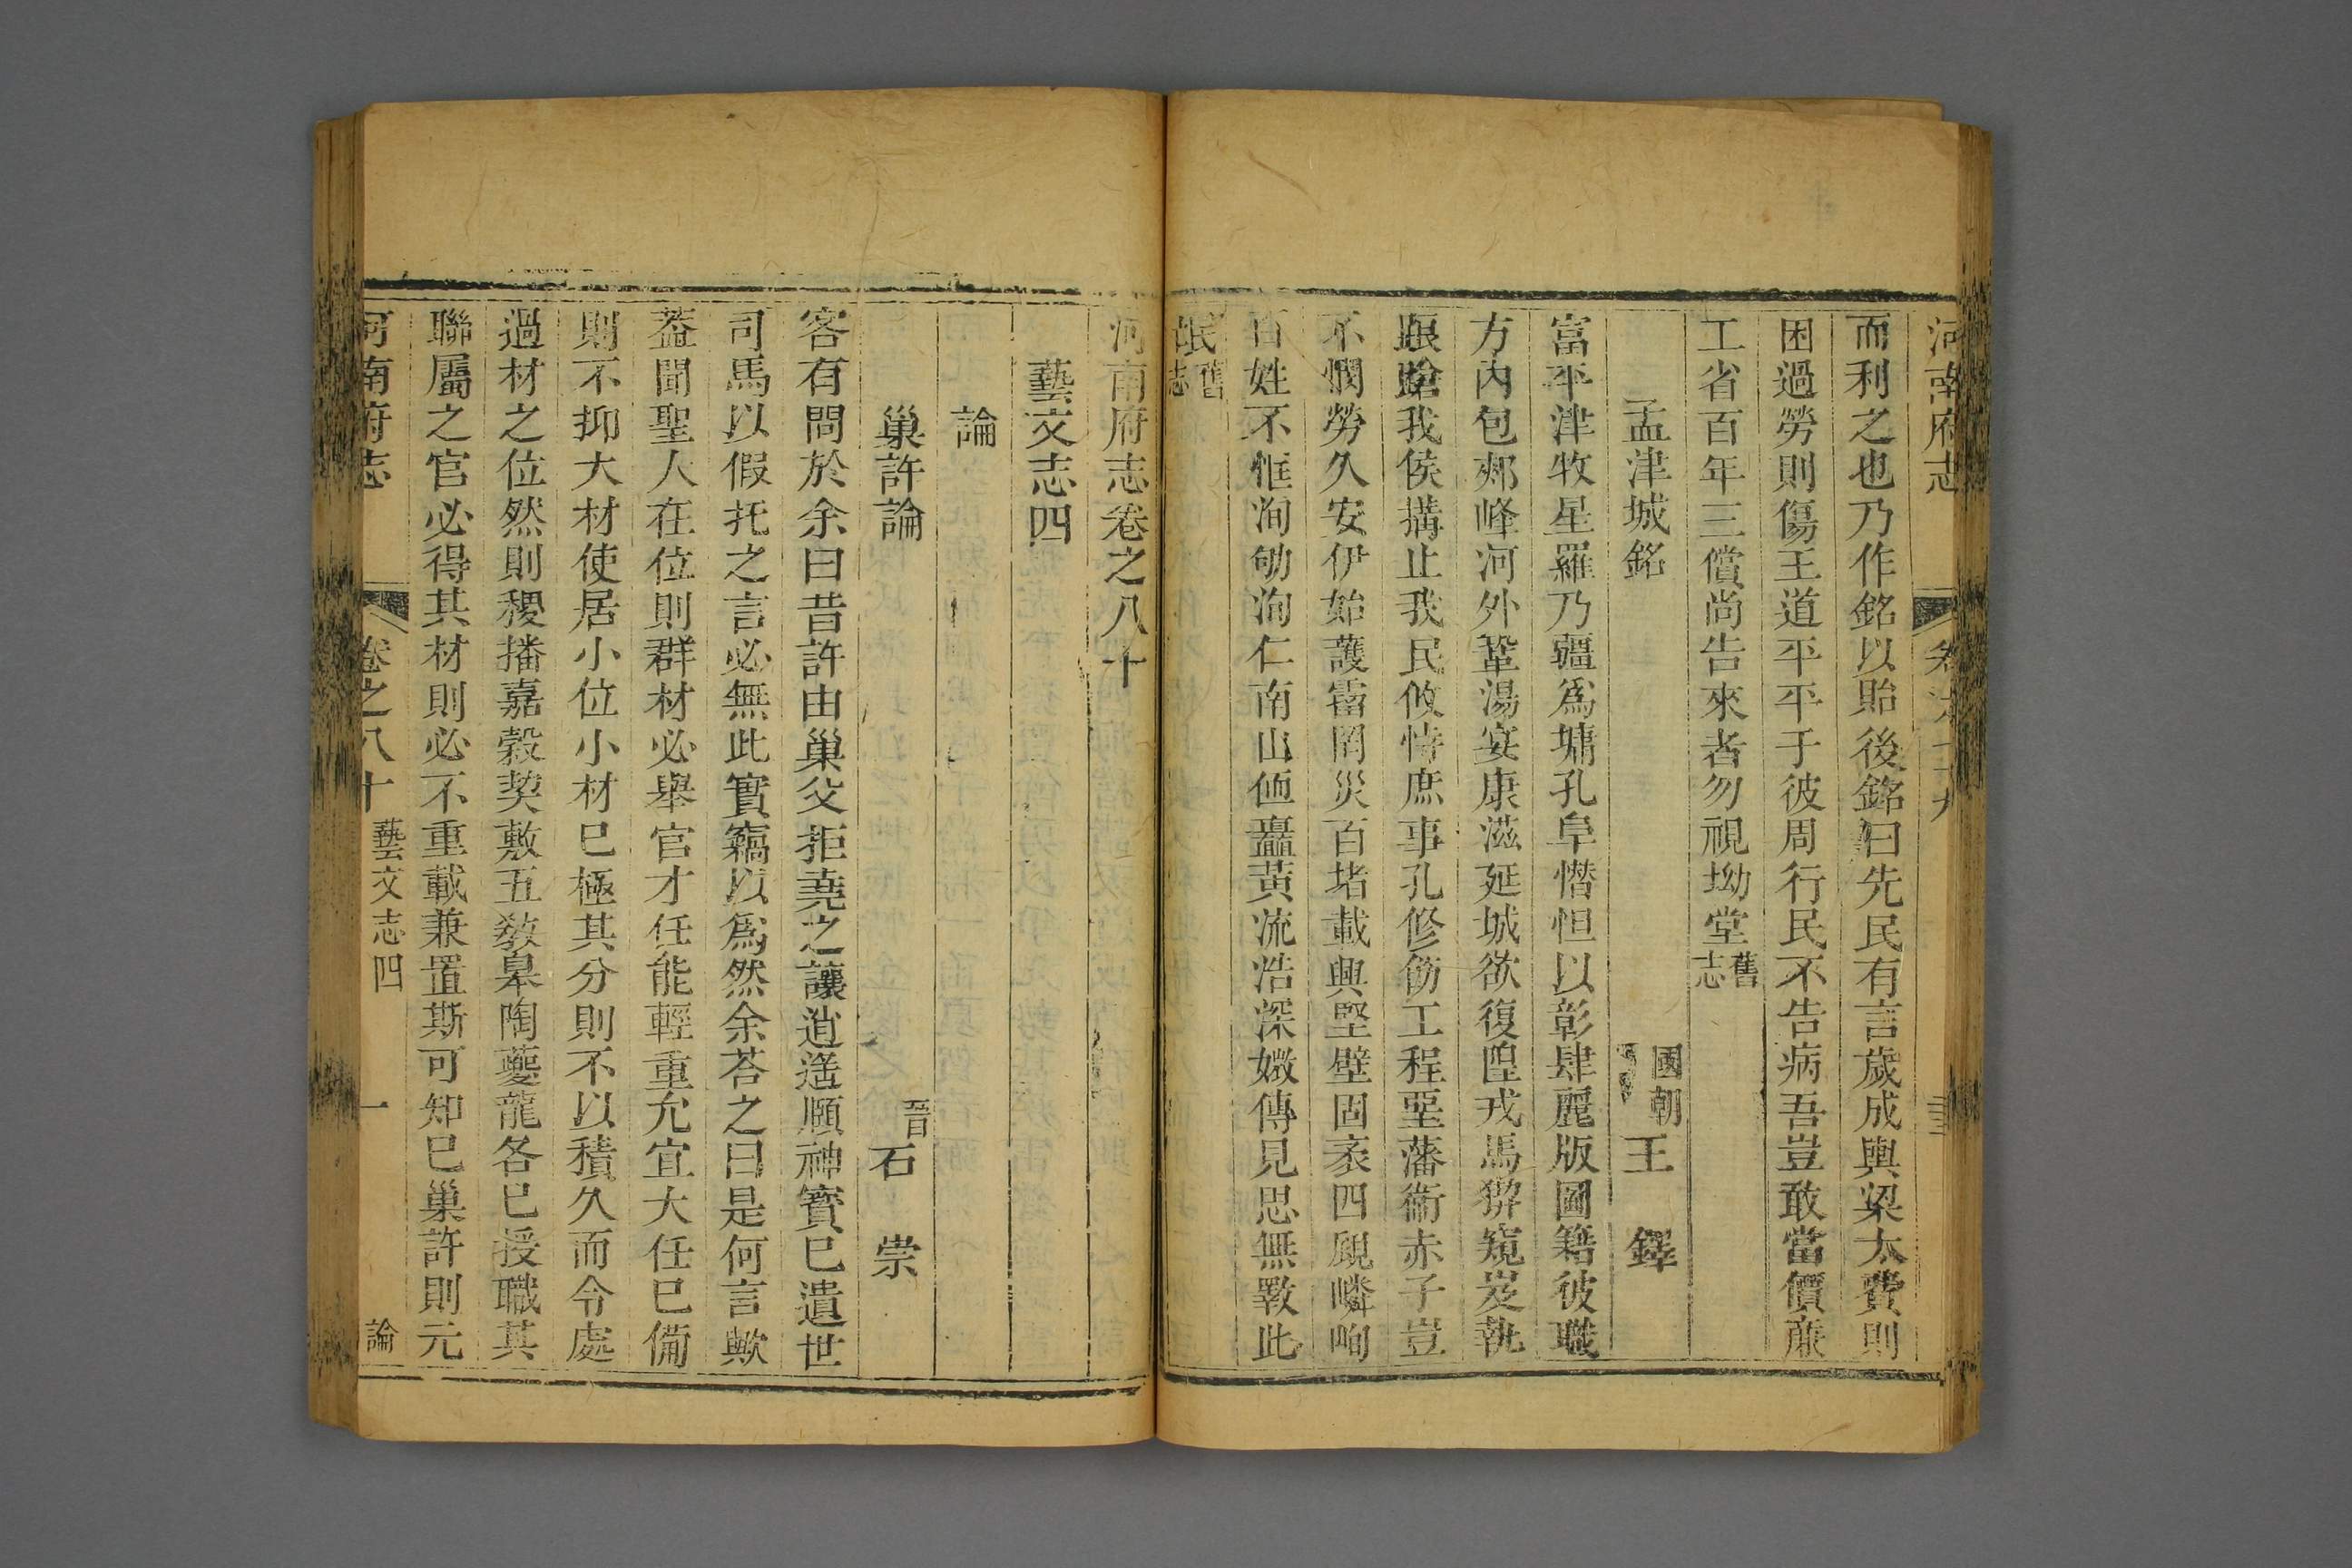 河南府志
而利之也乃作銘以貽後銘曰先民有言歲成輿梁太費則
困過勞則傷王道平平于彼周行民不告病吾豈敢當價廉
工省百年三償尚告來者勿視坳堂舊志
孟津城銘 國朝王鐸
富平津牧星羅乃疆爲墉孔阜憯怛以彰肆麗版圖籍彼職
方內包郟峰河外鞏湯宴康滋延城欲復隍戎馬猾窺岌執
踉蹌我侯搆止我民攸恃庶事孔修飭工程堊藩衞赤子豈
不憫勞久安伊始護霤閑災百堵載興堅壁固袤四覛嶙峋
百姓不恇洵劬洵仁南山値矗黃流浩深媺傳見思無斁此
氓舊志
河南府志卷之八十
藝文志四
論
巢許論 晉石崇
客有問於余曰昔許由巢父拒堯之讓逍遥頤神寳巳遺世
司馬以假托之言必無此實竊以爲然余荅之曰是何言歟
葢聞聖人在位則群材必舉官才任能輕重允宜大任巳備
則不抑大材使居小位小材巳極其分則不以積久而令處
過材之位然則稷播嘉穀契敷五教皋陶夔龍各已授職其
聯屬之官必得其材則必不重載兼置斯可知巳巢許則元
河南府志 卷之八十 藝文志四 論 一